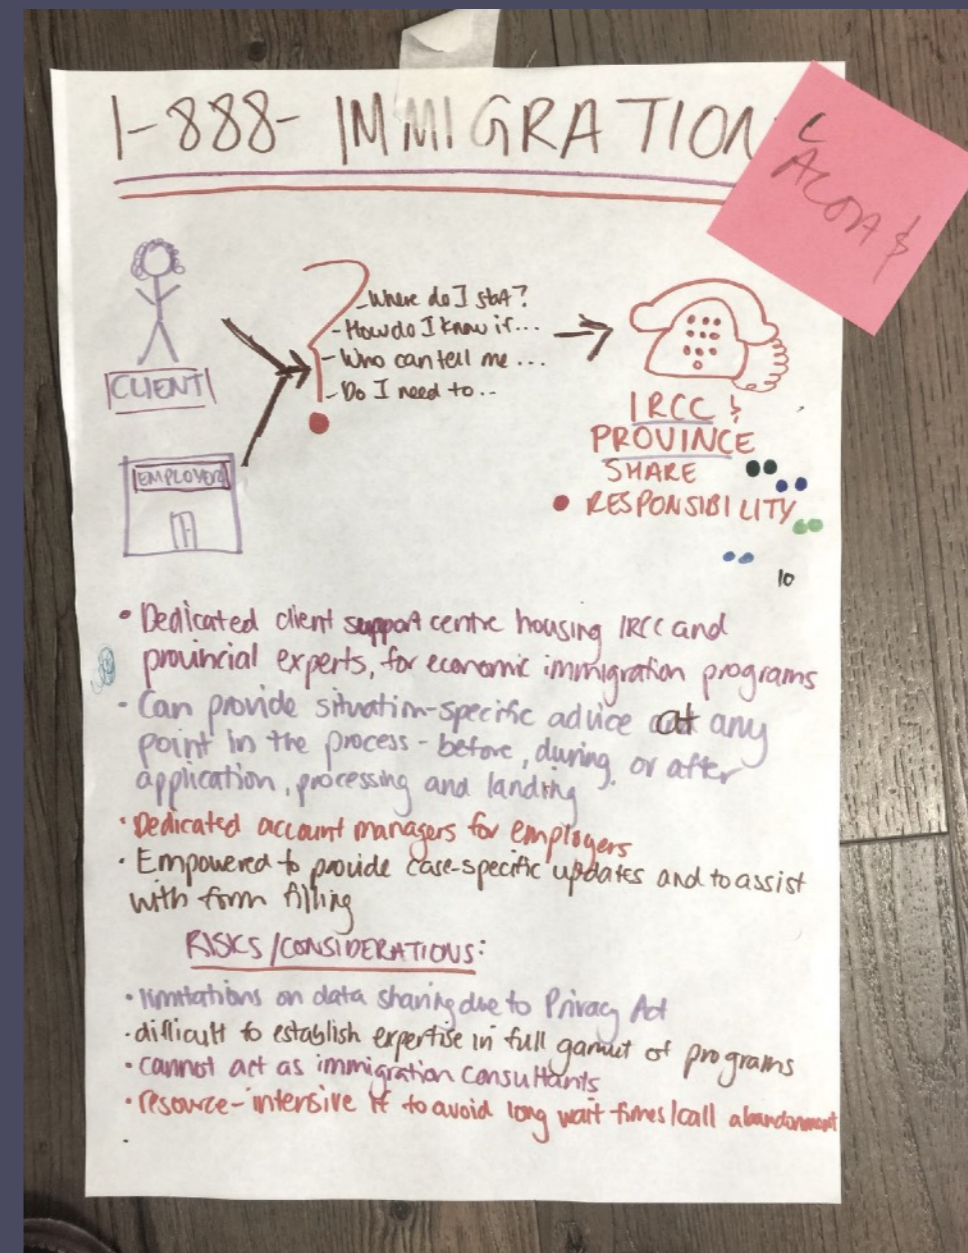 1-888- IMMIGRATION
CLIENT
EMPLOYER
- Where do I start?
- How do I know if...
- Who can tell me ...
- Do I need to...
IRCC &
PROVINCE
SHARE
RESPONSIBILITY
10
• Dedicated client support centre housing IRCC and
provincial experts, for economic immigration programs
• Can provide situation-specific advice at any
point in the process - before, during, or after
application, processing and landing
• Dedicated account managers for employers
• Empowered to provide case-specific updates and to assist
with form filling
RISKS/CONSIDERATIONS:
• limitations on data sharing due to Privacy Act
• difficult to establish expertise in full gamut of programs
• cannot act as immigration consultants
• resource-intensive if to avoid long wait times/call abandonment